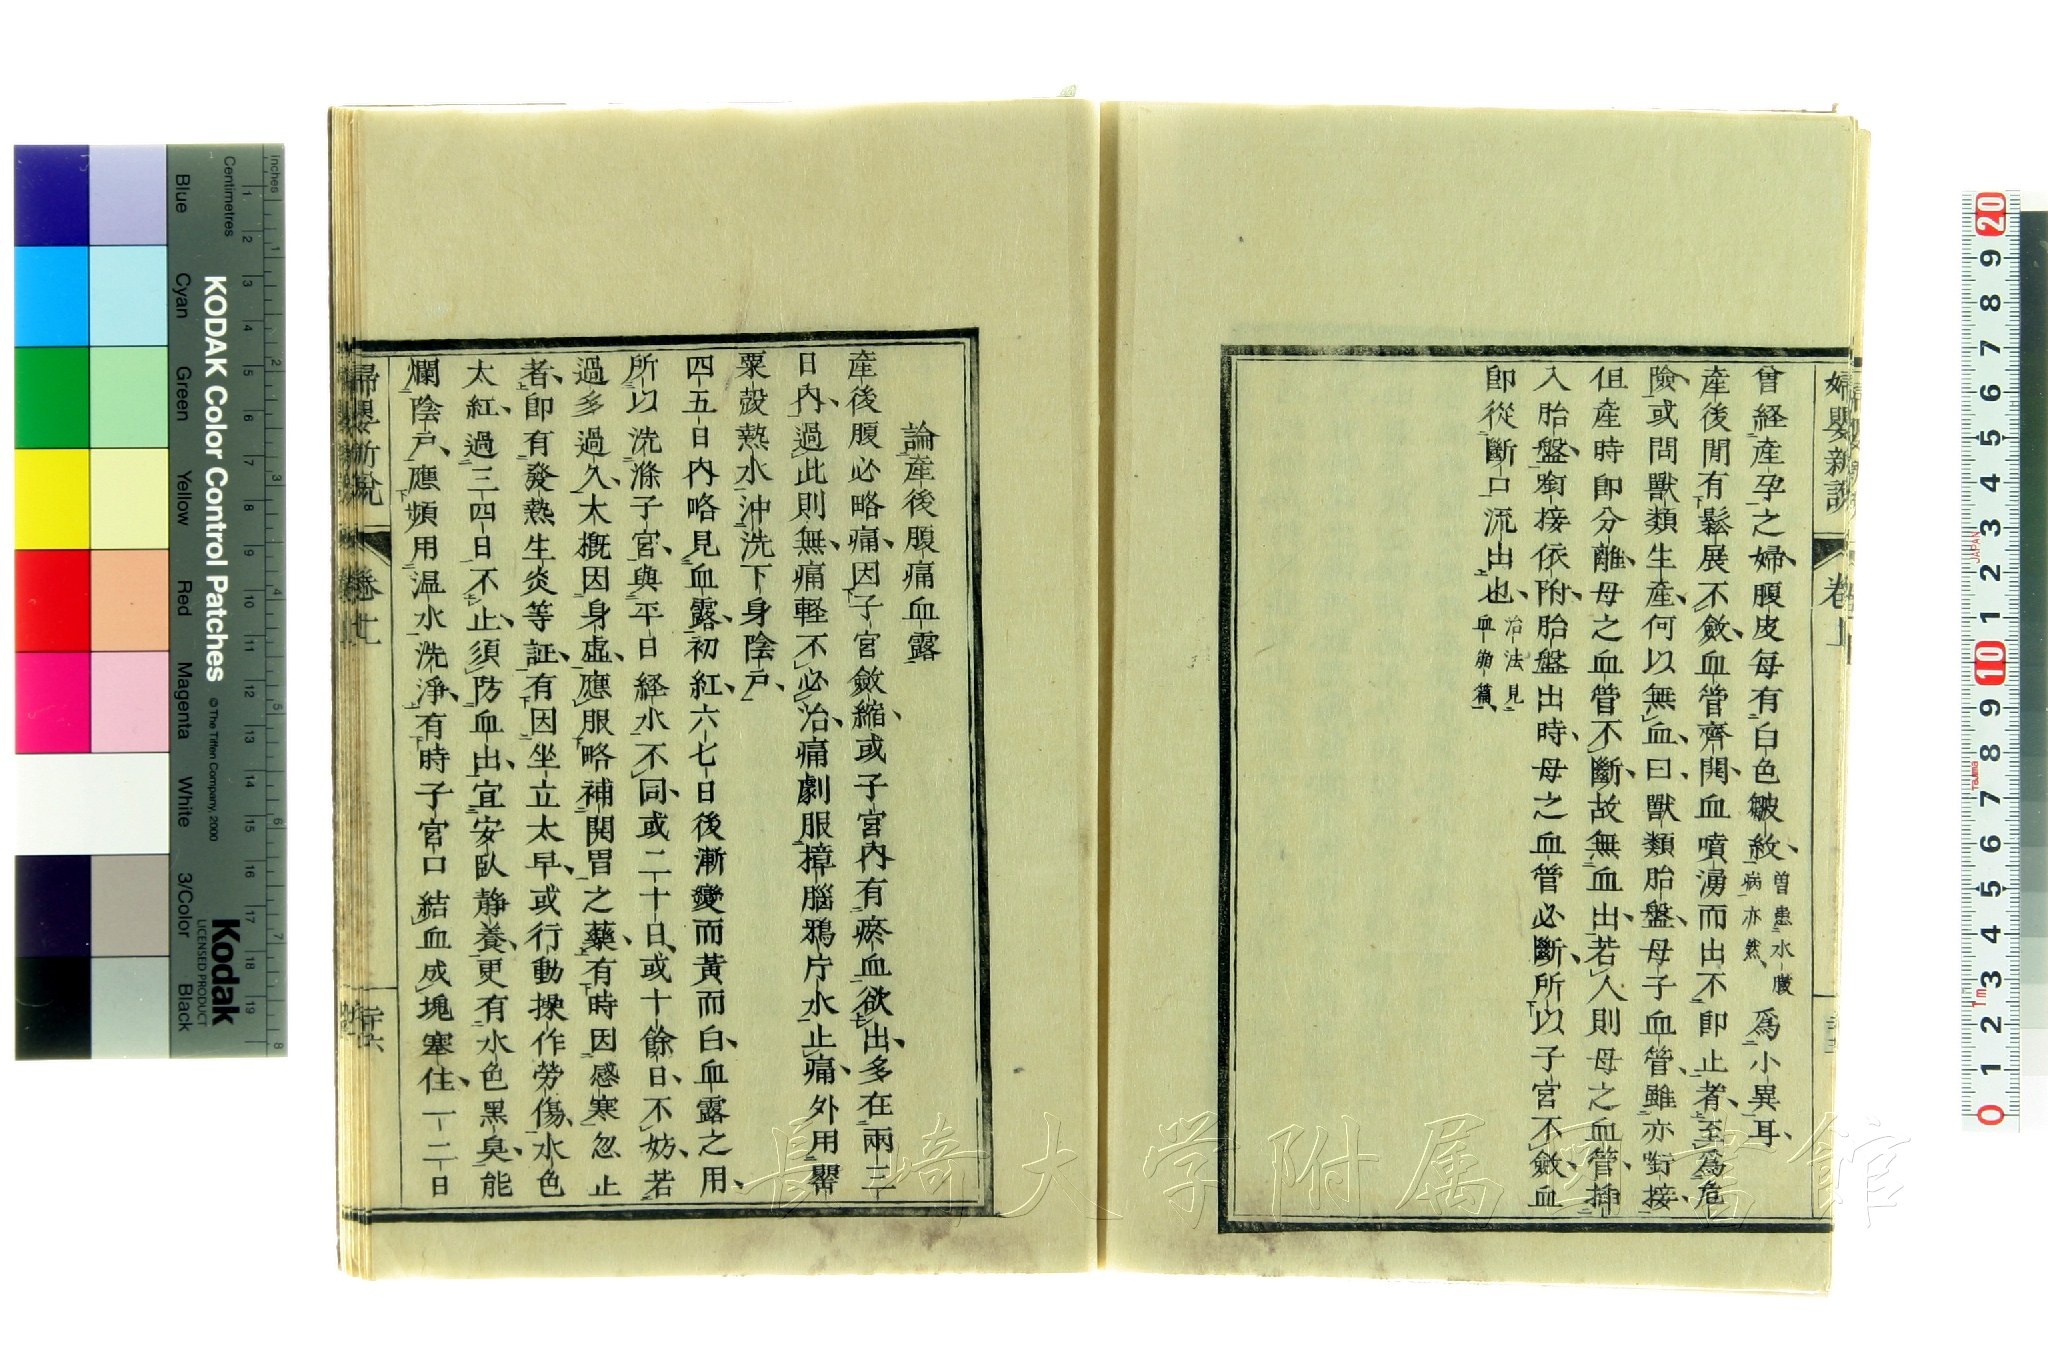 婦嬰新說 卷上
曾経產孕之婦、腹皮每有白色皺紋、曽患水臌病亦然、爲小異耳、
產後間有鬆展不斂、血管齊開、血噴湧而出不即止者、至爲危
險、或問獸類生產、何以無血、曰獸類胎盤、母子血管、雖亦銜接、
但產時即分離、母之血管不斷、故無血出、若人則母之血管、揷
入胎盤、銜接依附、胎盤出時、母之血管必斷、所以子宮不斂、血
即從斷口流出也、治法見血崩篇、
論產後腹痛血露
產後腹必略痛、因子宮斂縮、或子宮內有瘀血欲出、多在兩三
日內、過此則無、痛軽不必治、痛劇服撦腦鴉片水止痛、外用罌
粟殼熱水沖洗下身陰戶、
四五日內略見血露、初紅、六七日後漸變而黃而白、血露之用、
所以洗滌子宮、與平日経水不同、或二十日、或十餘日、不妨、若
過多過久、大概因身虛、應服略補開胃之藥、有時因感寒忽止
者、即有發熱生炎等証、有因坐立太早、或行動操作勞傷、水色
太紅、過三四日不止、須防血出、宜安臥靜養、更有水色黑臭、能
爛陰戶、應頻用温水洗淨、有時子宮口結血成塊塞住、一二日
婦嬰新說 卷上 二十六
KODAK Color Control Patches
© The Tiffen Company, 2000
Kodak
LICENSED PRODUCT
Blue Cyan Green Yellow Red Magenta White 3/Color Black
Centimetres 1 2 3 4 5 6 7 8 9 10 11 12 13 14 15 16 17 18 19
Inches 1 2 3 4 5 6 7 8
20 9 8 7 6 5 4 3 2 1 10 9 8 7 6 5 4 3 2 1 0
JAPAN
Tajima
長崎大学附属図書館